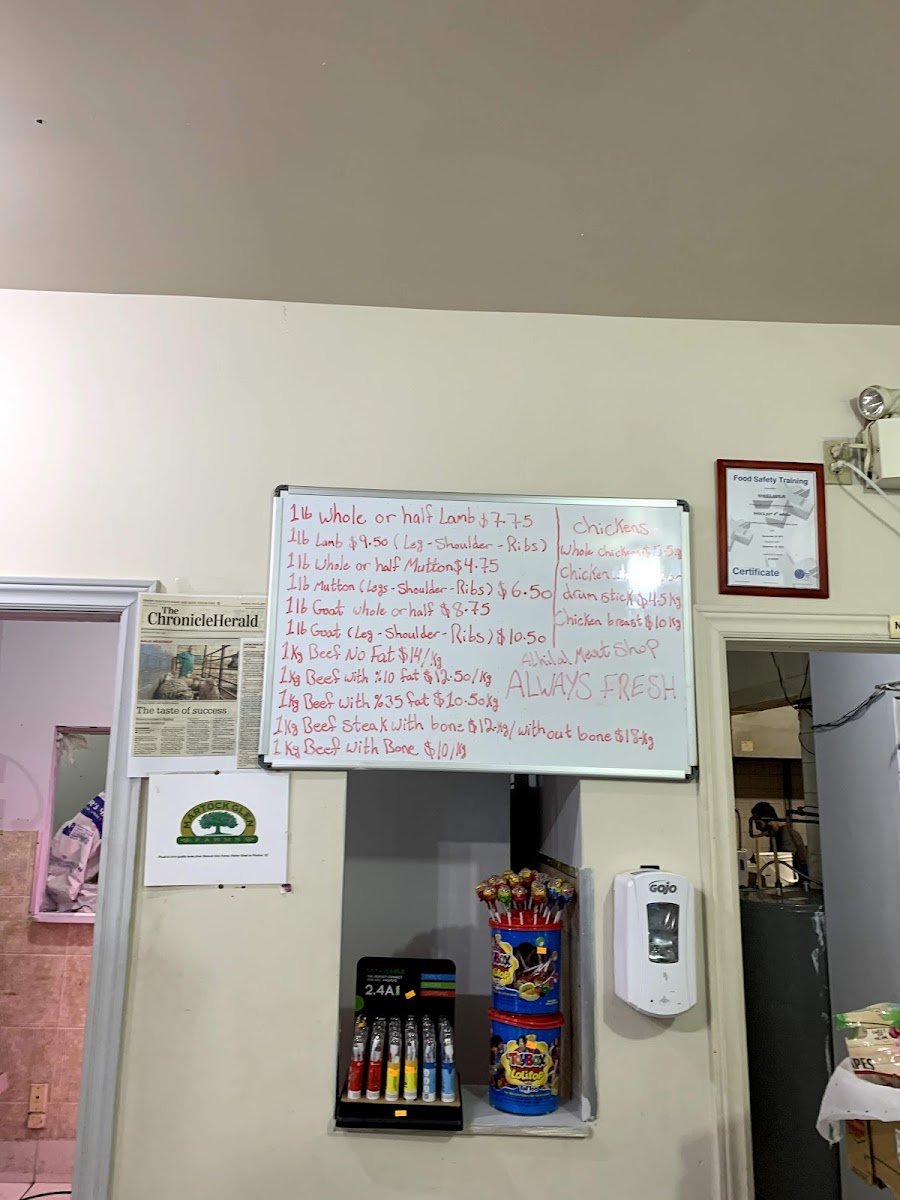 1lb Whole or half Lamb $7.75
1lb Lamb $9.50 (Leg - Shoulder - Ribs)
1lb Whole or half Mutton $4.75
1lb Mutton (Legs - Shoulder - Ribs) $6.50
1lb Goat whole or half $8.75
1lb Goat (Leg - Shoulder - Ribs) $10.50
1Kg Beef No Fat $14/Kg
1Kg Beef with %10 fat $12.50/Kg
1Kg Beef with %35 fat $10.50Kg
1Kg Beef Steak with bone $12Kg/without bone $18Kg
1Kg Beef with Bone $10/Kg
Chickens
Whole chicken
Chicken
drum stick $4.5 Kg
Chicken breast $10 Kg
Alhilal Meat Shop
ALWAYS FRESH
Food Safety Training
Certificate
The
ChronicleHerald
The taste of success
MARTOCK GLEN
FARMS
2.4A
TOYBOX
Lolipop
GOJO